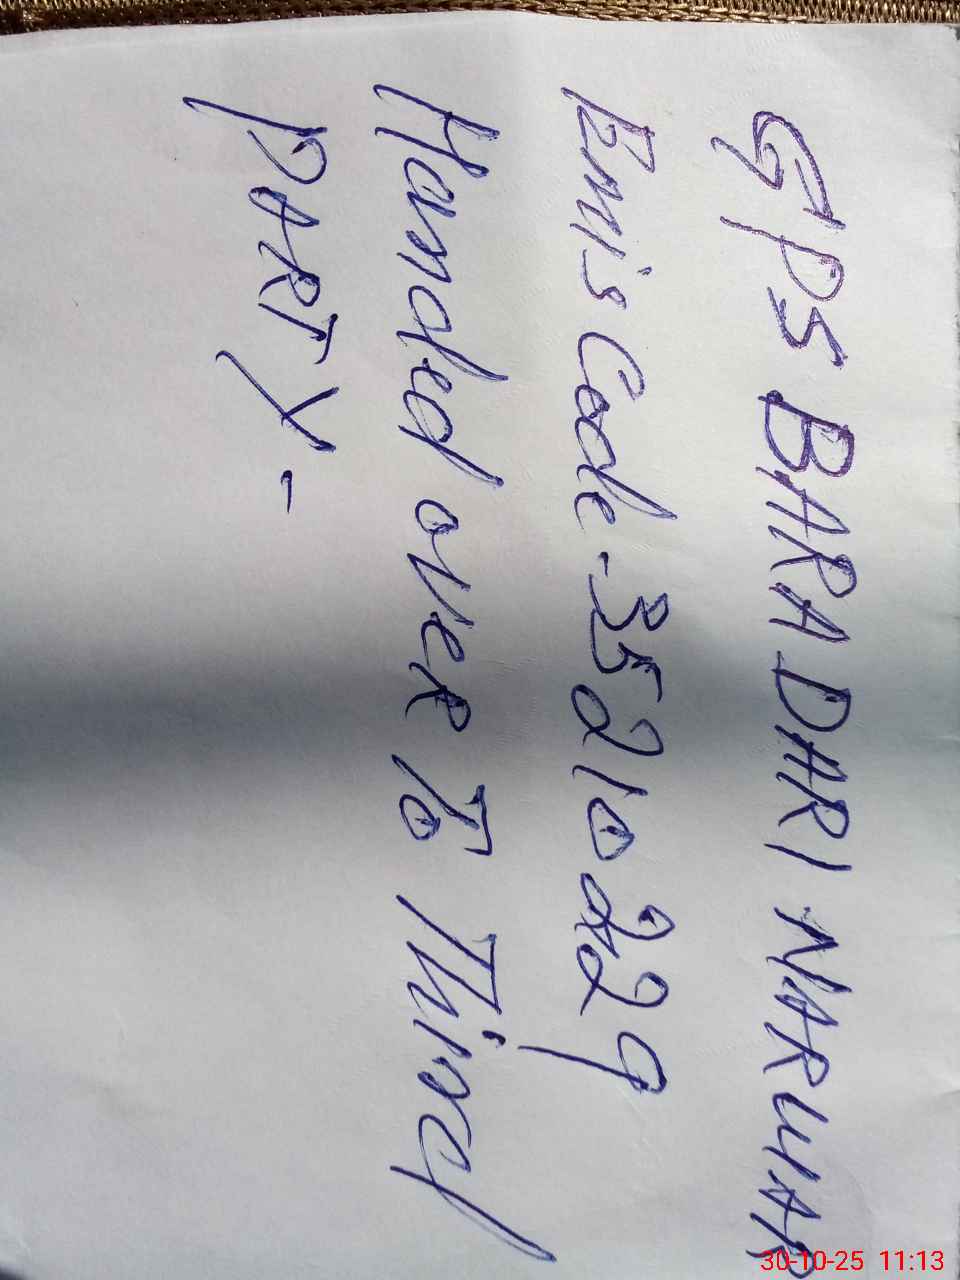 GPS BARA DARI NARUWAR
Emis Code - 35210229
Handed over To Third
PARTY -
30-10-25 11:13